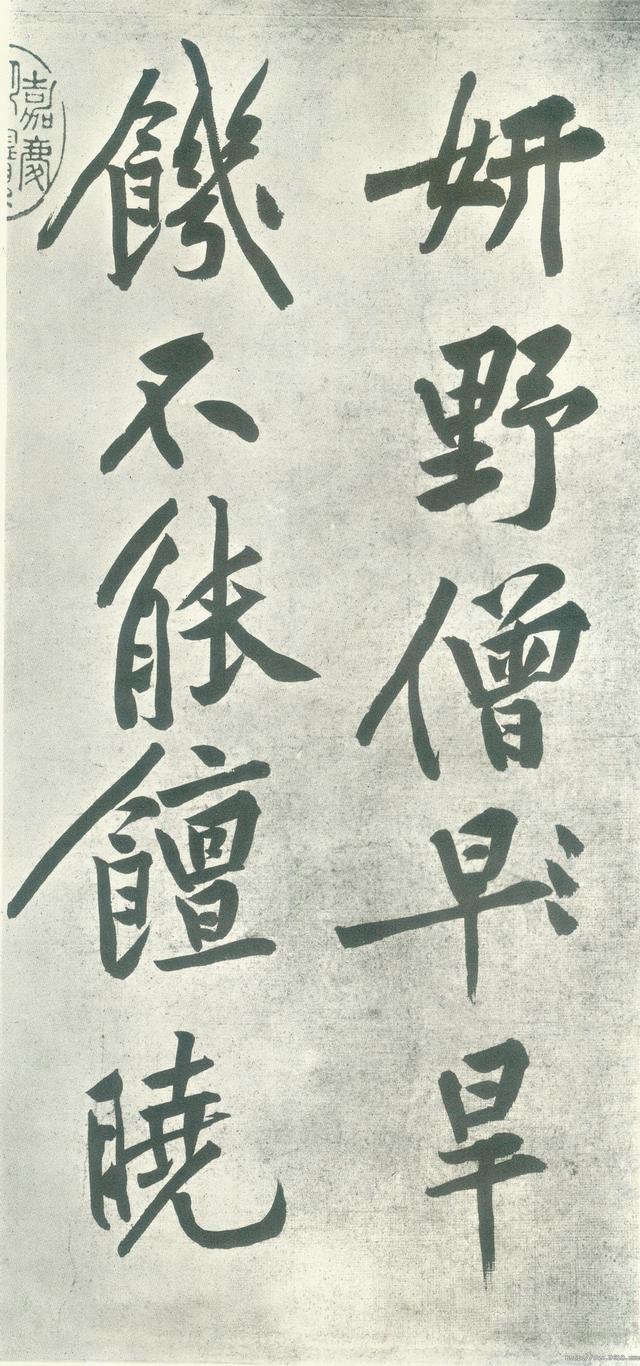 妍野僧早旱
饑不能饘曉
嘉慶